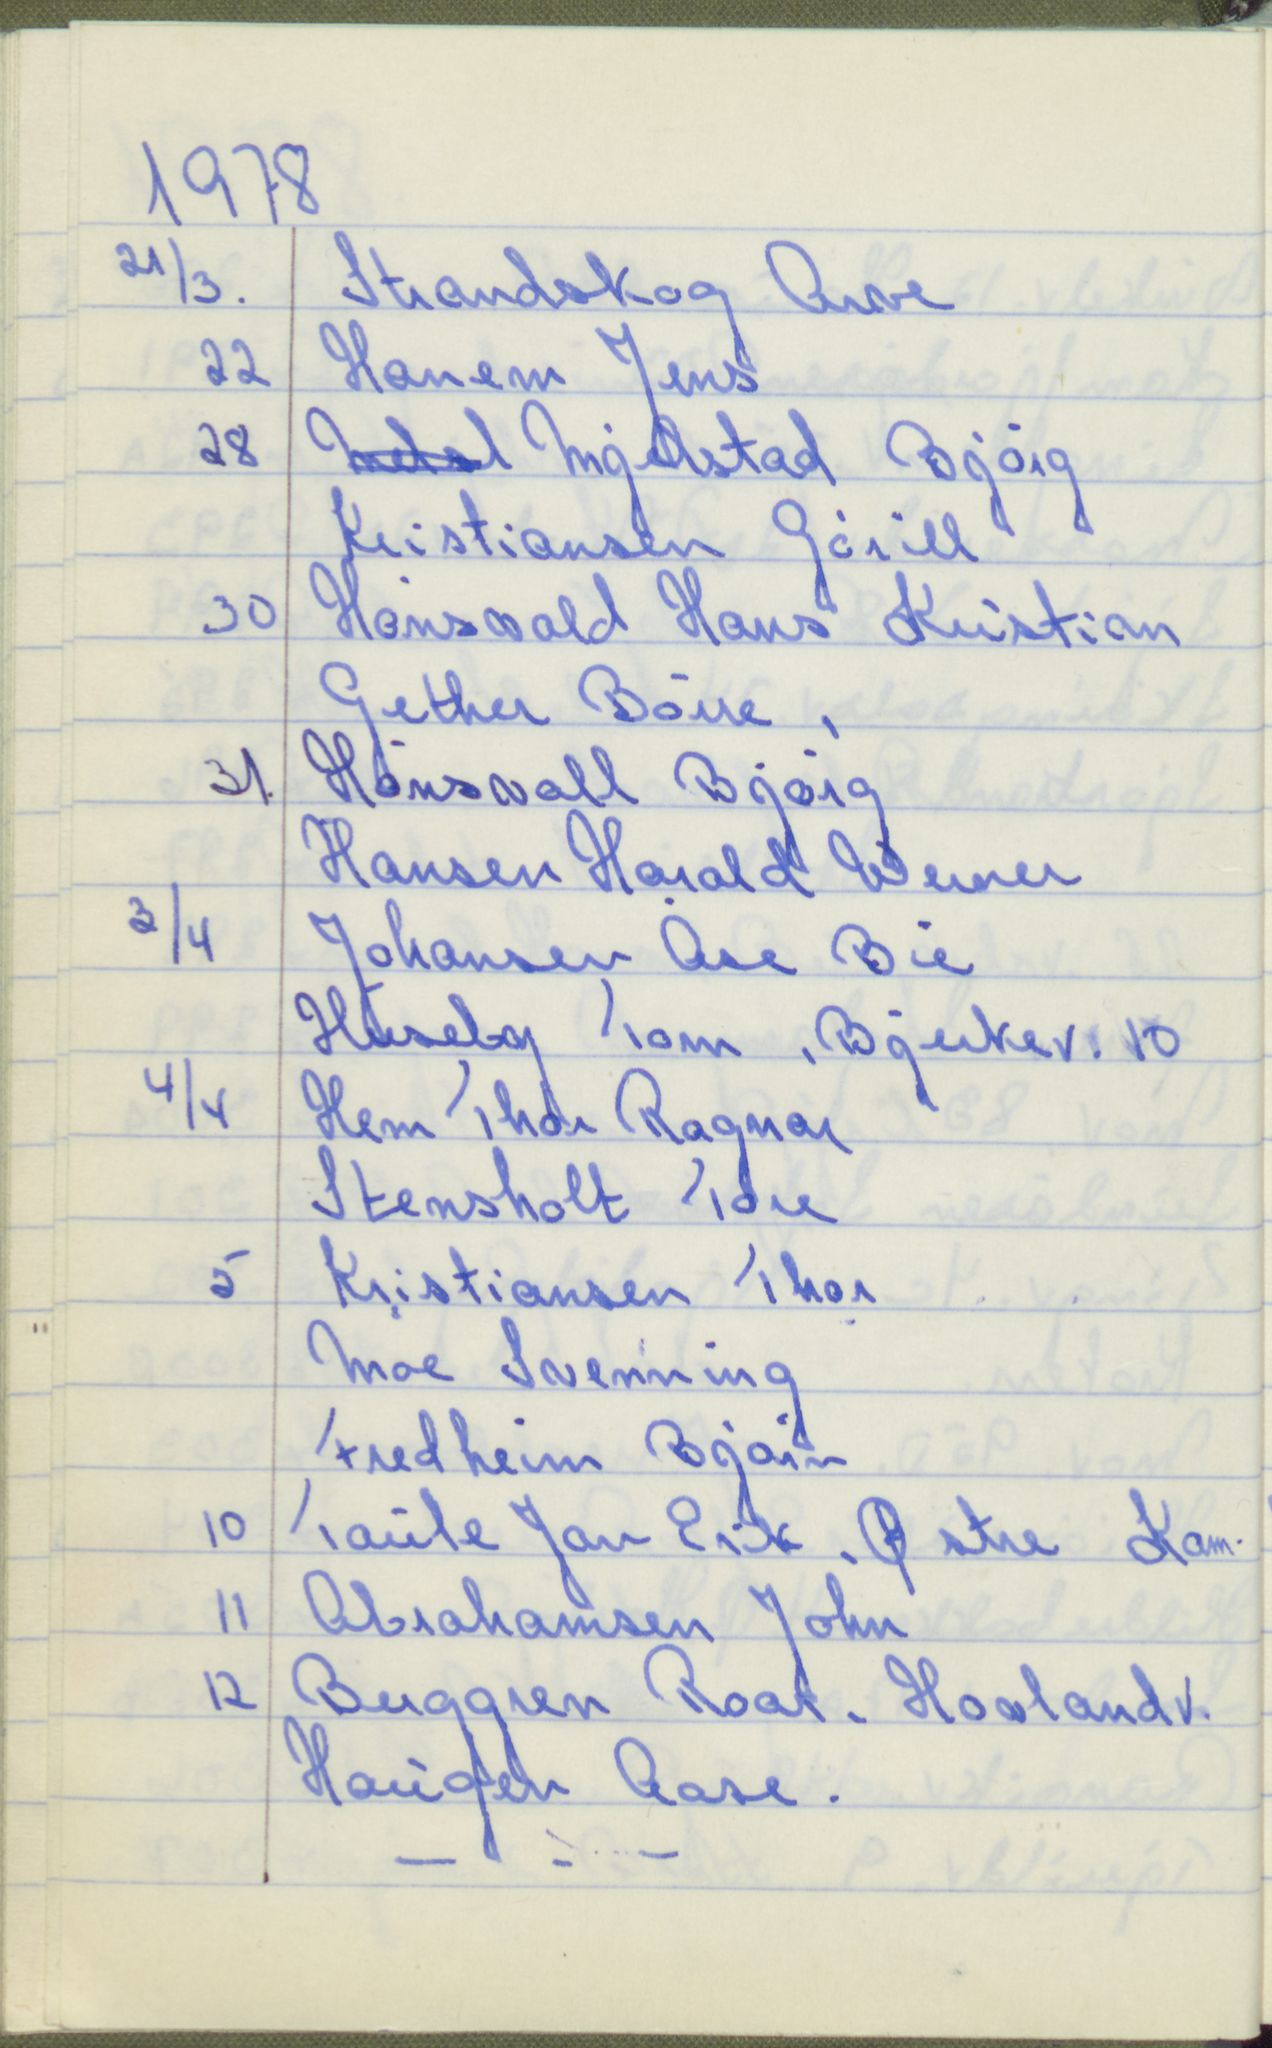 1978
21/3. Strandskog Arve
22 Hanem Jens
28 Mjelstad Bjørg
Kristiansen Gørill
30 Hønsvald Hans Kristian
Gether Børre,
31. Hønsvall Bjørg
Hansen Harald Werner
3/4 Johansen Åse Bie
Huseby Tom, Bjerkev. 10
4/4 Hem Thor Ragnar
Stensholt Tore
5 Kristiansen Thor
Moe Svenning
Fredheim Bjørn
10 Taule Jan Erik. Østre Kam.
11 Abrahamsen John
12 Berggren Roar. Hovlandv.
Haugen Aase.